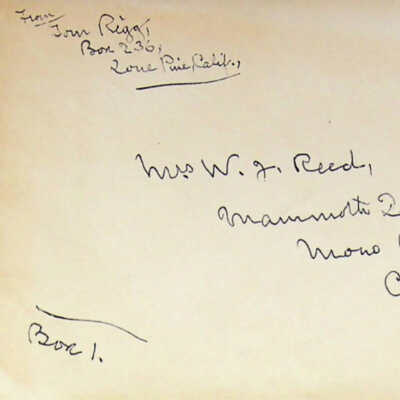 From
Tom Rigg,
Box 236,
Lone Pine, Calif.,
Mrs W. J. Reed,
Mammoth
Mono
C
Box 1.